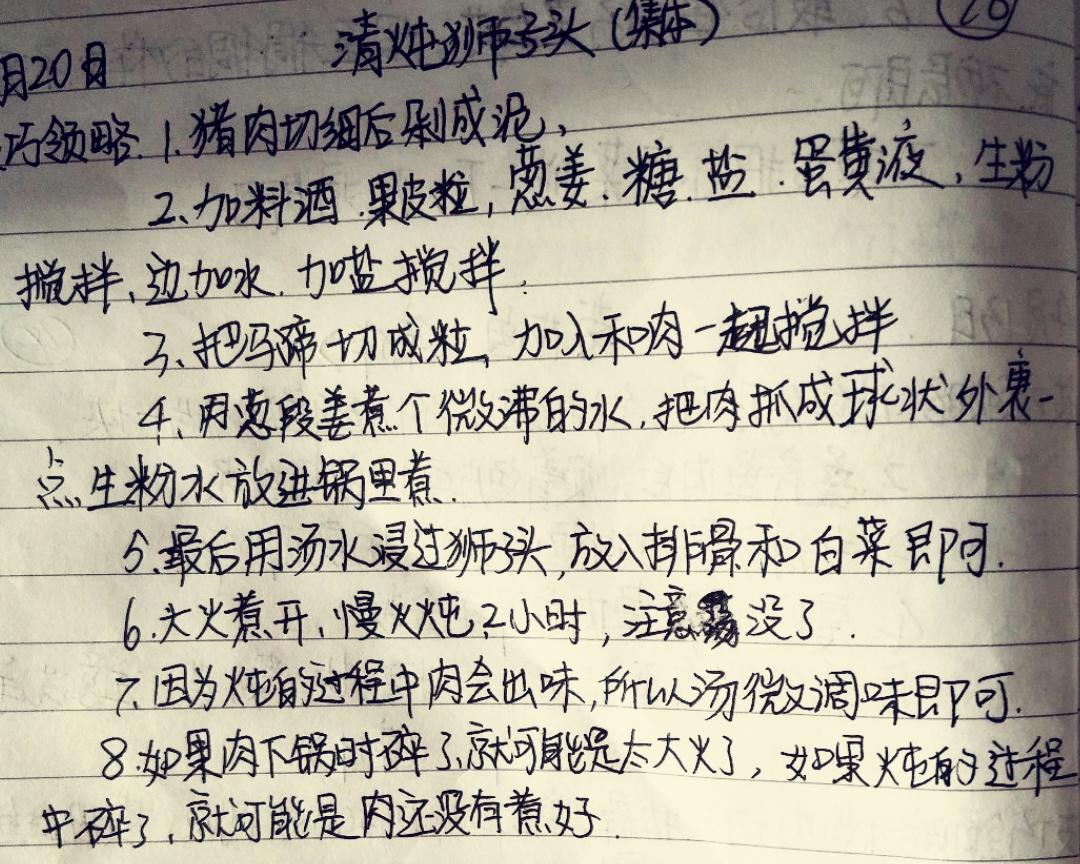 清炖狮子头(集体) 20
月20日
巧领略.1.猪肉切细后剁成泥、
2、加料酒.果皮粒,葱姜.糖.盐.蛋黄液、生粉
搅拌、边加水.加盐搅拌.
3、把马蹄切成粒,加入和肉一起搅拌
4、用葱段姜煮个微沸的水,把肉抓成球状外裹一
点生粉水放进锅里煮.
5.最后用汤水浸过狮子头,放入排骨和白菜即可.
6.大火煮开,慢火炖2小时,注意没了.
7.因为炖的过程中肉会出味,所以汤微调味即可.
8.如果肉下锅时碎了,就可能是太大火了,如果炖的过程
中碎了,就可能是肉还没有煮好.